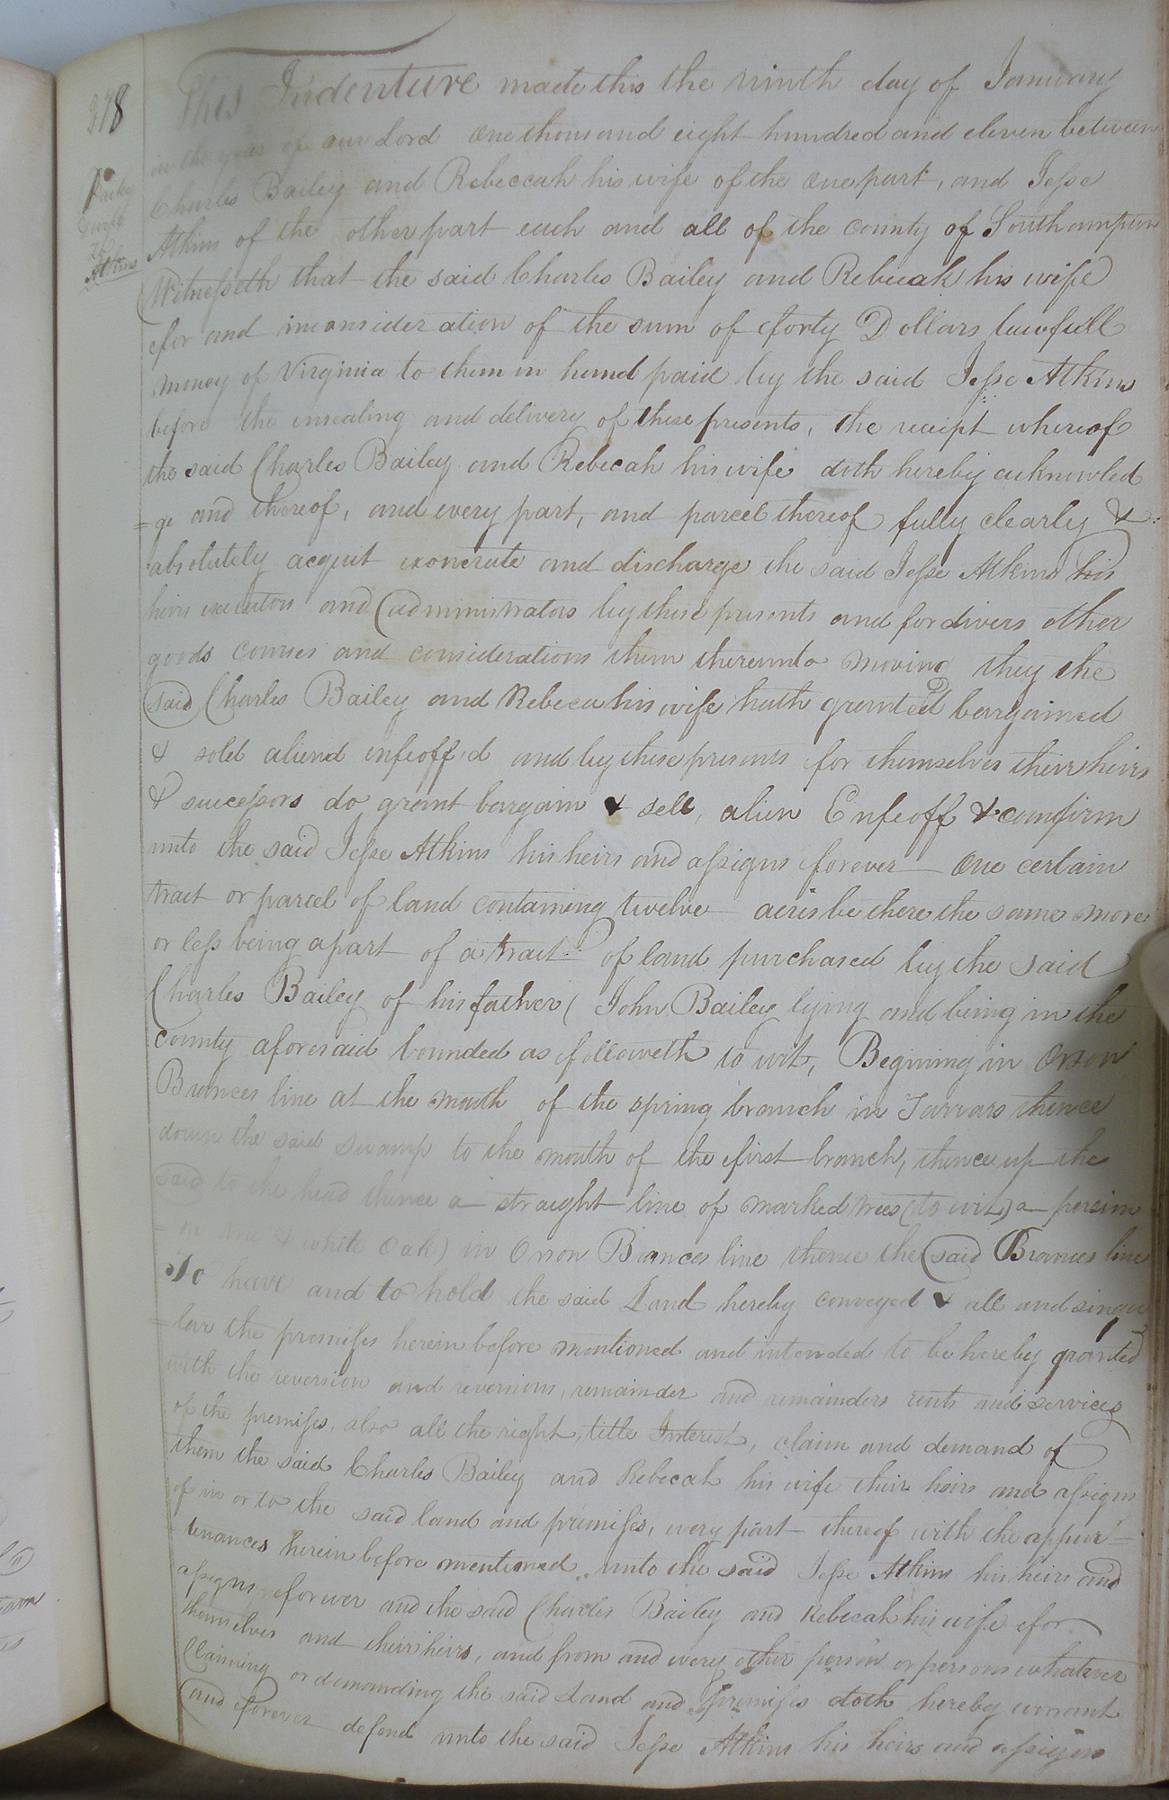 378
Bailey
Deed
To
Atkins
This Indenture made this the ninth day of January
in the year of our Lord One thousand eight hundred and eleven between
Charles Bailey and Rebeccah his wife of the One part, and Jesse
Atkins of the other part each and all of the County of Southampton
Witnesseth that the said Charles Bailey and Rebecah his wife
for and inconsideration of the sum of forty Dollars lawfull
money of Virginia to them in hand paid by the said Jesse Atkins
before the ensealing and delivery of these presents, the receipt whereof
the said Charles Bailey and Rebecah his wife doth hereby acknowled
=ge and thereof, and every part, and parcel thereof fully clearly &
absolutely acquit exonerate and discharge the said Jesse Atkins his
heirs executors and administrators by these presents and for divers other
goods courses and considerations them thereunto moving they the
said Charles Bailey and Rebeca his wife hath granted bargained
& sold aliend enfeoffed and by these presents for themselves their heirs
& successors do grant bargain & sell, alien Enfeoff & confirm
unto the said Jesse Atkins his heirs and assigns forever One certain
tract or parcel of land containing twelve acres be there the same more
or less being a part of a tract of land purchased by the said
Charles Bailey of his father John Bailey lying and being in the
County aforesaid bounded as followeth to wit, Begining in Orson
Brances line at the mouth of the spring branch in Tarrars thence
down the said swamp to the mouth of the first branch, thence up the
said to the head thence a straight line of marked trees (to wit) a persim
on one & white Oak) in Orson Brances line thence the said Brances line
To have and to hold the said Land hereby conveyed & all and singu
=lar the premises herein before mentioned and intended to be hereby granted
with the reversion and reversions, remainder and remainders rents and services
of the premises, also all the right, title Interest, claim and demand of
them the said Charles Bailey and Rebecah his wife their heirs and assigns
of in or to the said land and premises, every part thereof with the appur=
tenances herein before mentioned unto the said Jesse Atkins his heirs and
assigns forever and the said Charles Bailey and Rebecah his wife for
themselves and their heirs, and from and every other person or persons whatever
Claiming or demanding the said Land and premises doth hereby warrant
and forever defend unto the said Jesse Atkins his heirs and assigns